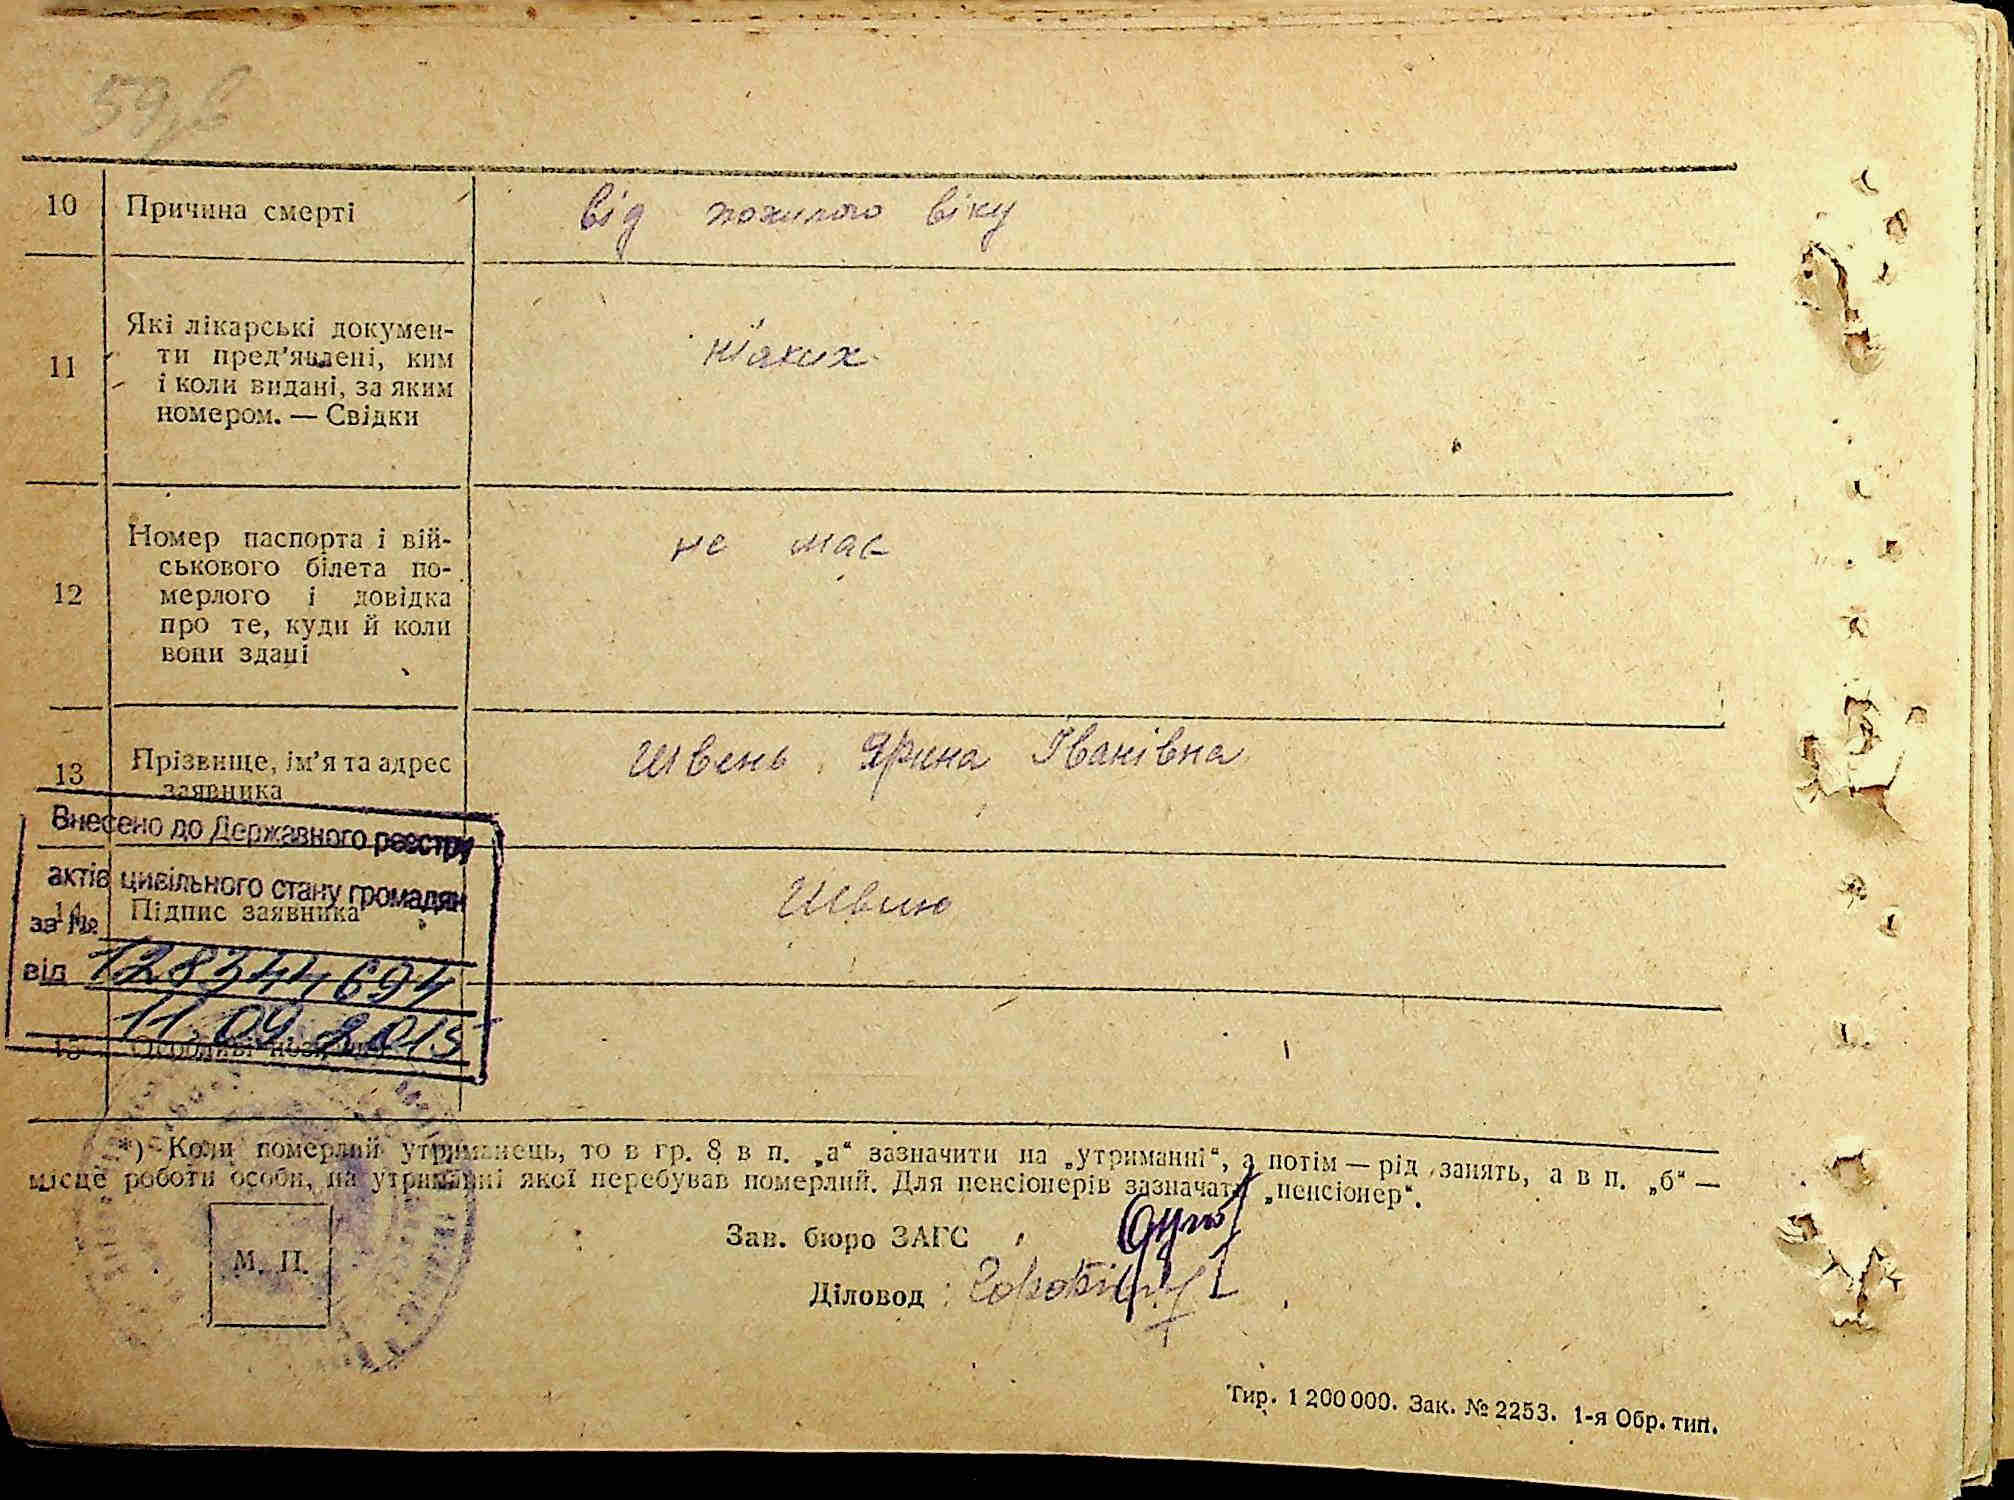 10 Причина смерті від пожилого віку
11 Які лікарські докумен-
ти пред’явлені, ким
і коли видані, за яким
номером. — Свідки
ніяких
12 Номер паспорта і вій-
ськового білета по-
мерлого і довідка
про те, куди й коли
вони здані
не має
13 Прізвище, ім’я та адрес
заявника
Швень Ярина Іванівна
Внесено до Державного реєстру
актів цивільного стану громадян
14 Підпис заявника
за №
від 128344694
11.09.2015
15 Особливі
*) Коли померлий утриманець, то в гр. 8 в п. „а“ зазначити на „утриманні“, а потім — рід занять, а в п. „б“ —
місце роботи особи, на утриманні якої перебував померлий. Для пенсіонерів зазначати „пенсіонер“.
Зав. бюро ЗАГС
М. П.
Діловод
Тир. 1 200 000. Зак. № 2253. 1-я Обр. тип.